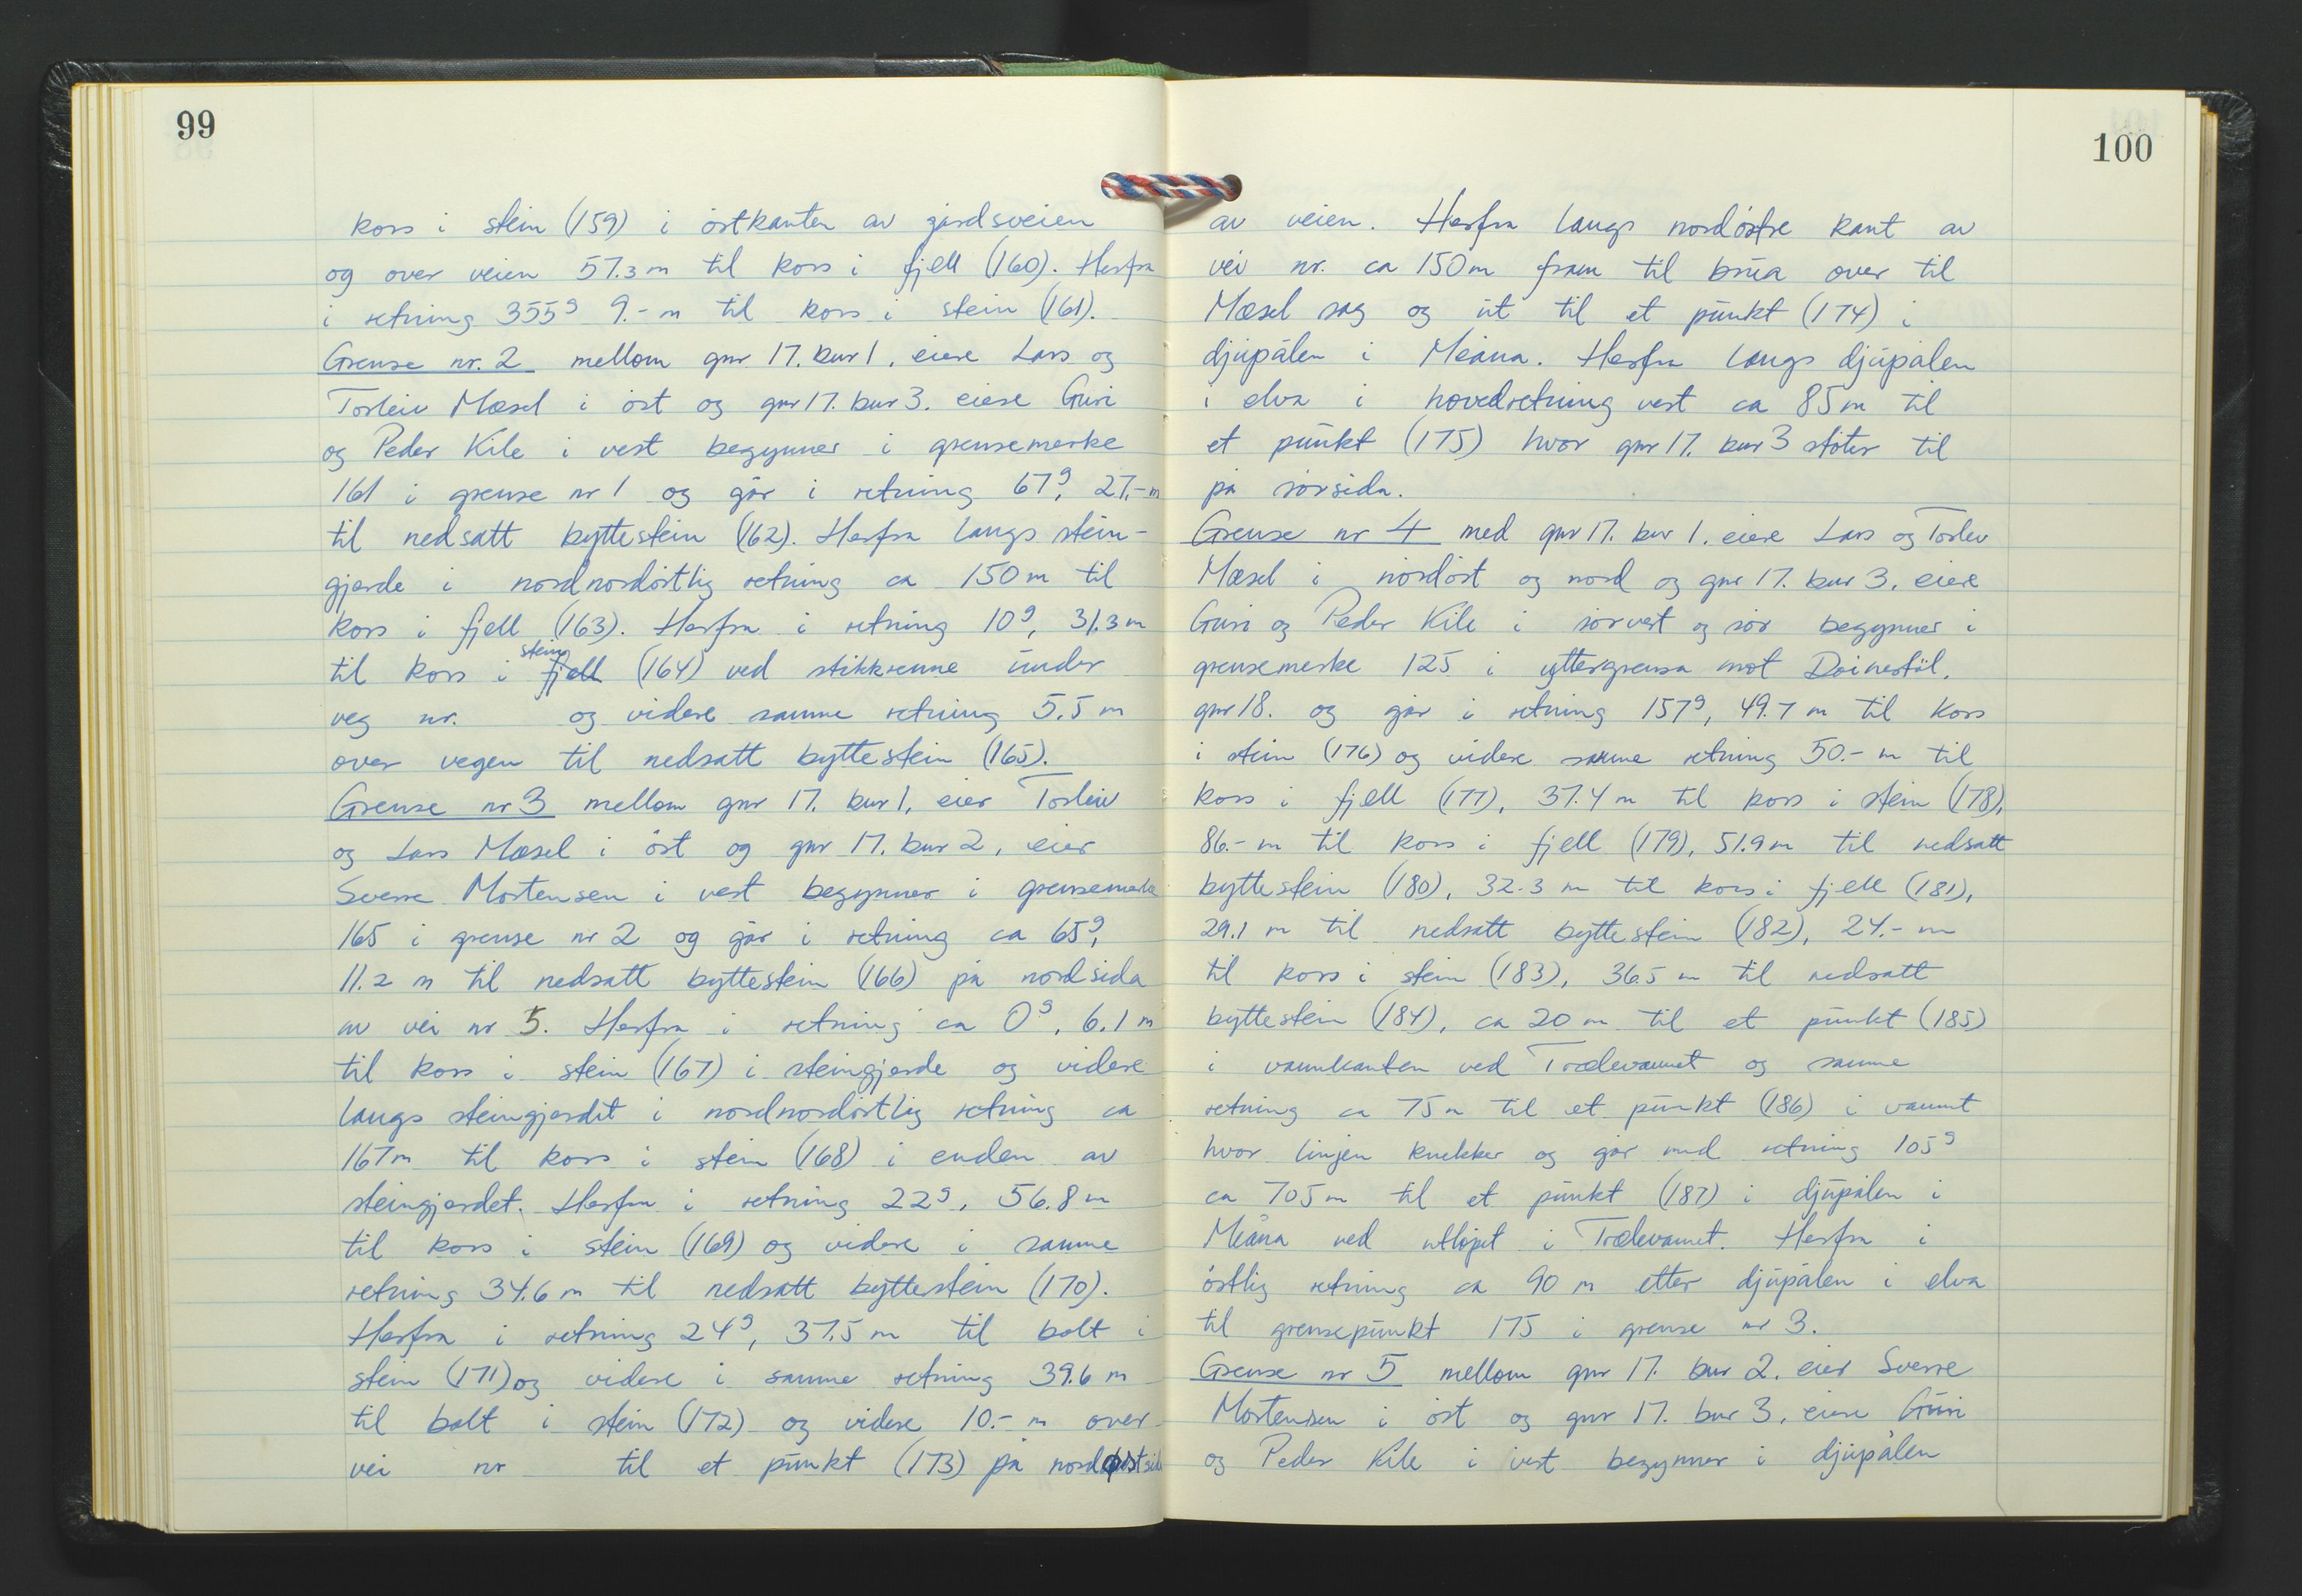 99
kors i stein (159) i östkanten av gårdsveien
og over veien 57.3 m til kors i fjell (160). Herfra
i retning 355g 9.- m til kors i stein (161).
Grense nr. 2 mellom gnr 17. bnr 1, eiere Lars og
Torleiv Mæsel i öst og gnr 17. bnr 3. eiere Guri
og Peder Kile i vest begynner i grensemerke
161 i grense nr 1 og går i retning 67g, 27.- m
til nedsatt byttestein (162). Herfra langs stein-
gjerde i nordnordöstlig retning ca 150 m til
kors i fjell (163). Herfra i retning 10g, 31.3 m
stein
til kors i fjell (164) ved stikkrenne under
veg nr. og videre samme retning 5.5 m
over vegen til nedsatt byttestein (165).
Grense nr 3 mellom gnr 17. bnr 1, eier Torleiv
og Lars Mæsel i öst og gnr 17. bnr 2, eier
Sverre Mortensen i vest begynner i grensemerke
165 i grense nr 2 og går i retning ca 65g,
11.2 m til nedsatt byttestein (166) på nordsida
av vei nr 5. Herfra i retning ca 0g, 6.1 m
til kors i stein (167) i steingjerde og videre
langs steingjerdet i nordnordöstlig retning ca
167 m til kors i stein (168) i enden av
steingjerdet. Herfra i retning 22g, 56.8 m
til kors i stein (169) og videre i samme
retning 34.6 m til nedsatt byttestein (170).
Herfra i retning 24g, 37.5 m til bolt i
stein (171) og videre i samme retning 39.6 m
til bolt i stein (172) og videre 10.- m over
vei nr til et punkt (173) på nordøstsida
100
av veien. Herfra langs nordöstre kant av
vei nr. ca 150 m fram til brua over til
Mæsel sag og ut til et punkt (174) i
djupålen i Meåna. Herfra langs djupålen
i elva i hovedretning vest ca 85 m til
et punkt (175) hvor gnr 17. bnr 3 stöter til
på sörsida.
Grense nr 4 med gnr 17. bnr 1. eiere Lars og Torlev
Mæsel i nordöst og nord og gnr 17. bnr 3. eiere
Guri og Peder Kile i sörvest og sör begynner i
grensemerke 125 i yttergrensa mot Doinestöl,
gnr 18. og går i retning 157g, 49.7 m til kors
i stein (176) og videre samme retning 50.- m til
kors i fjell (177), 37.4 m til kors i stein (178),
86.- m til kors i fjell (179), 51.9 m til nedsatt
byttestein (180), 32.3 m til kors i fjell (181),
29.1 m til nedsatt byttestein (182), 24.- m
til kors i stein (183), 36.5 m til nedsatt
byttestein (184), ca 20 m til et punkt (185)
i vannkanten ved Trælevannet og samme
retning ca 75 m til et punkt (186) i vannet
hvor linjen knekker og går med retning 105g
ca 705 m til et punkt (187) i djupålen i
Meåna ved utlöpet i Trælevannet. Herfra i
östlig retning ca 90 m etter djupålen i elva
til grensepunkt 175 i grense nr 3.
Grense nr 5 mellom gnr 17. bnr 2. eier Sverre
Mortensen i öst og gnr 17. bnr 3, eiere Guri
og Peder Kile i vest begynner i djupålen